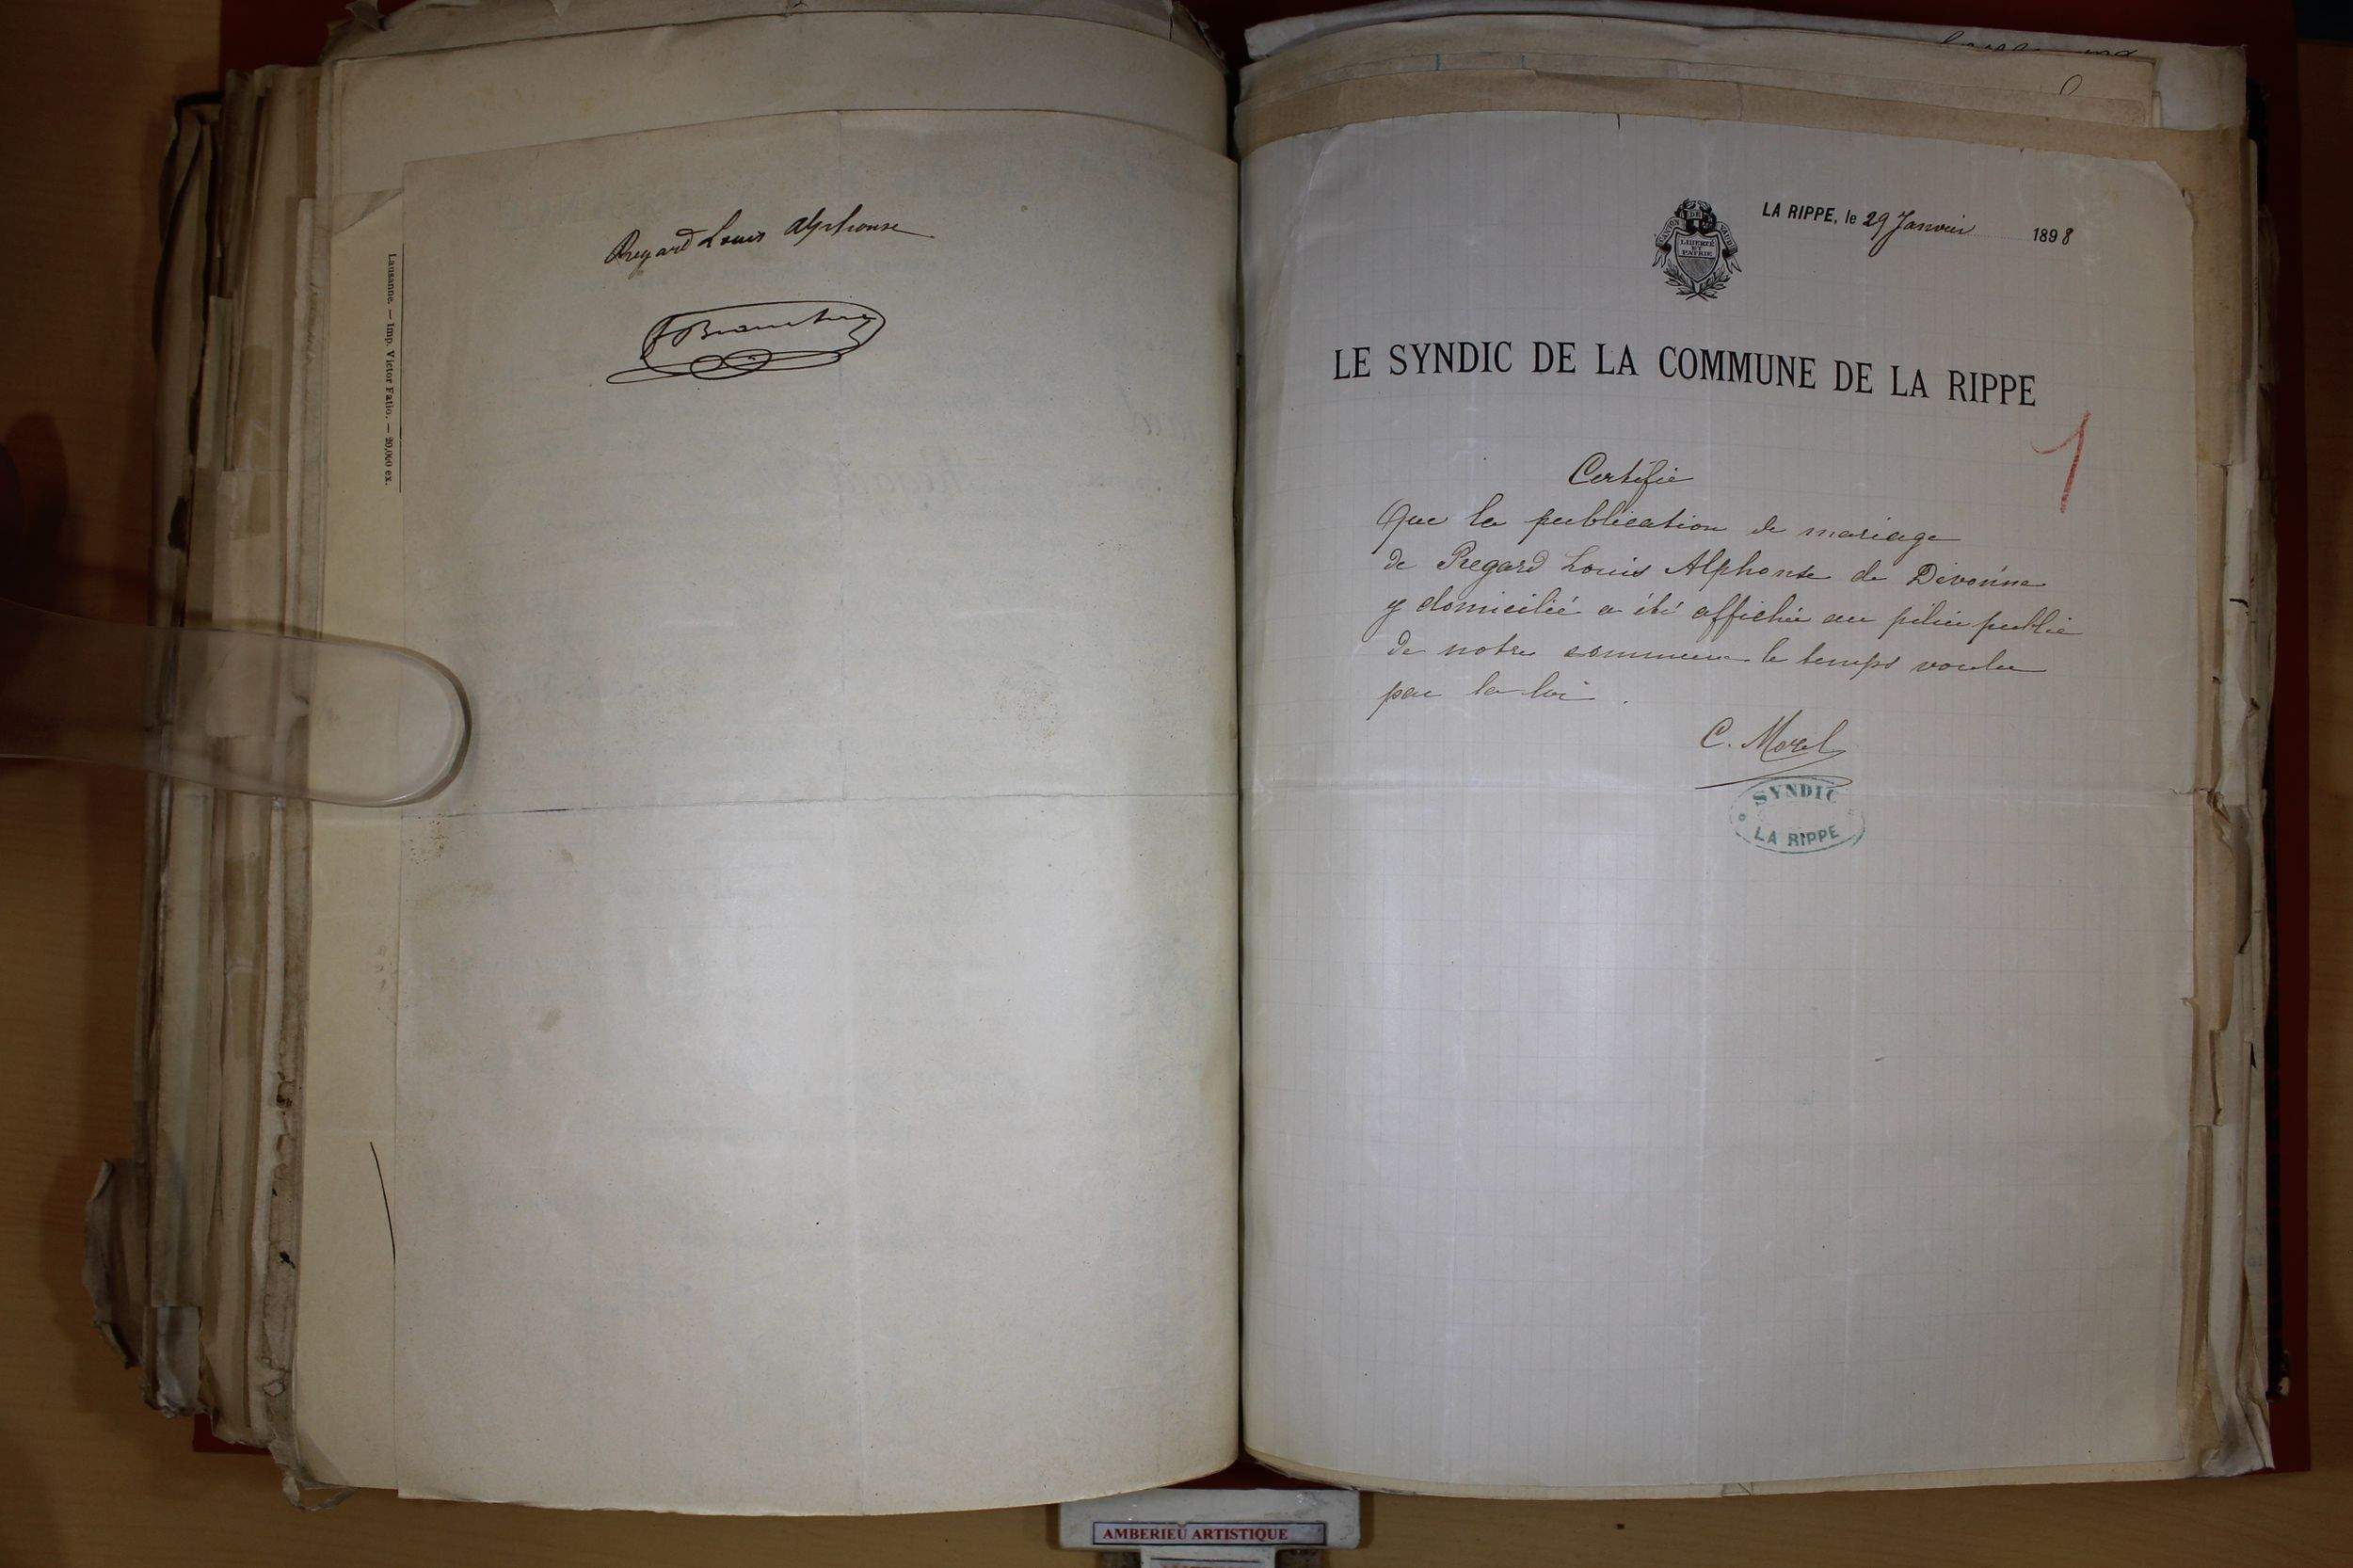 Lausanne. — Imp. Victor Fatio. — 20,000 ex.
Regard Louis Alphonse
LA RIPPE, le 29 Janvier 1898
CANTON DE VAUD
LIBERTÉ
ET
PATRIE
LE SYNDIC DE LA COMMUNE DE LA RIPPE
1
Certifie
Que la publication de mariage
de Regard Louis Alphonse de Divonne
y domicilié a été affichée au pilier public
de notre commune le temps voulu
par la loi.
C. Morel
SYNDIC
LA RIPPE
AMBERIEU ARTISTIQUE